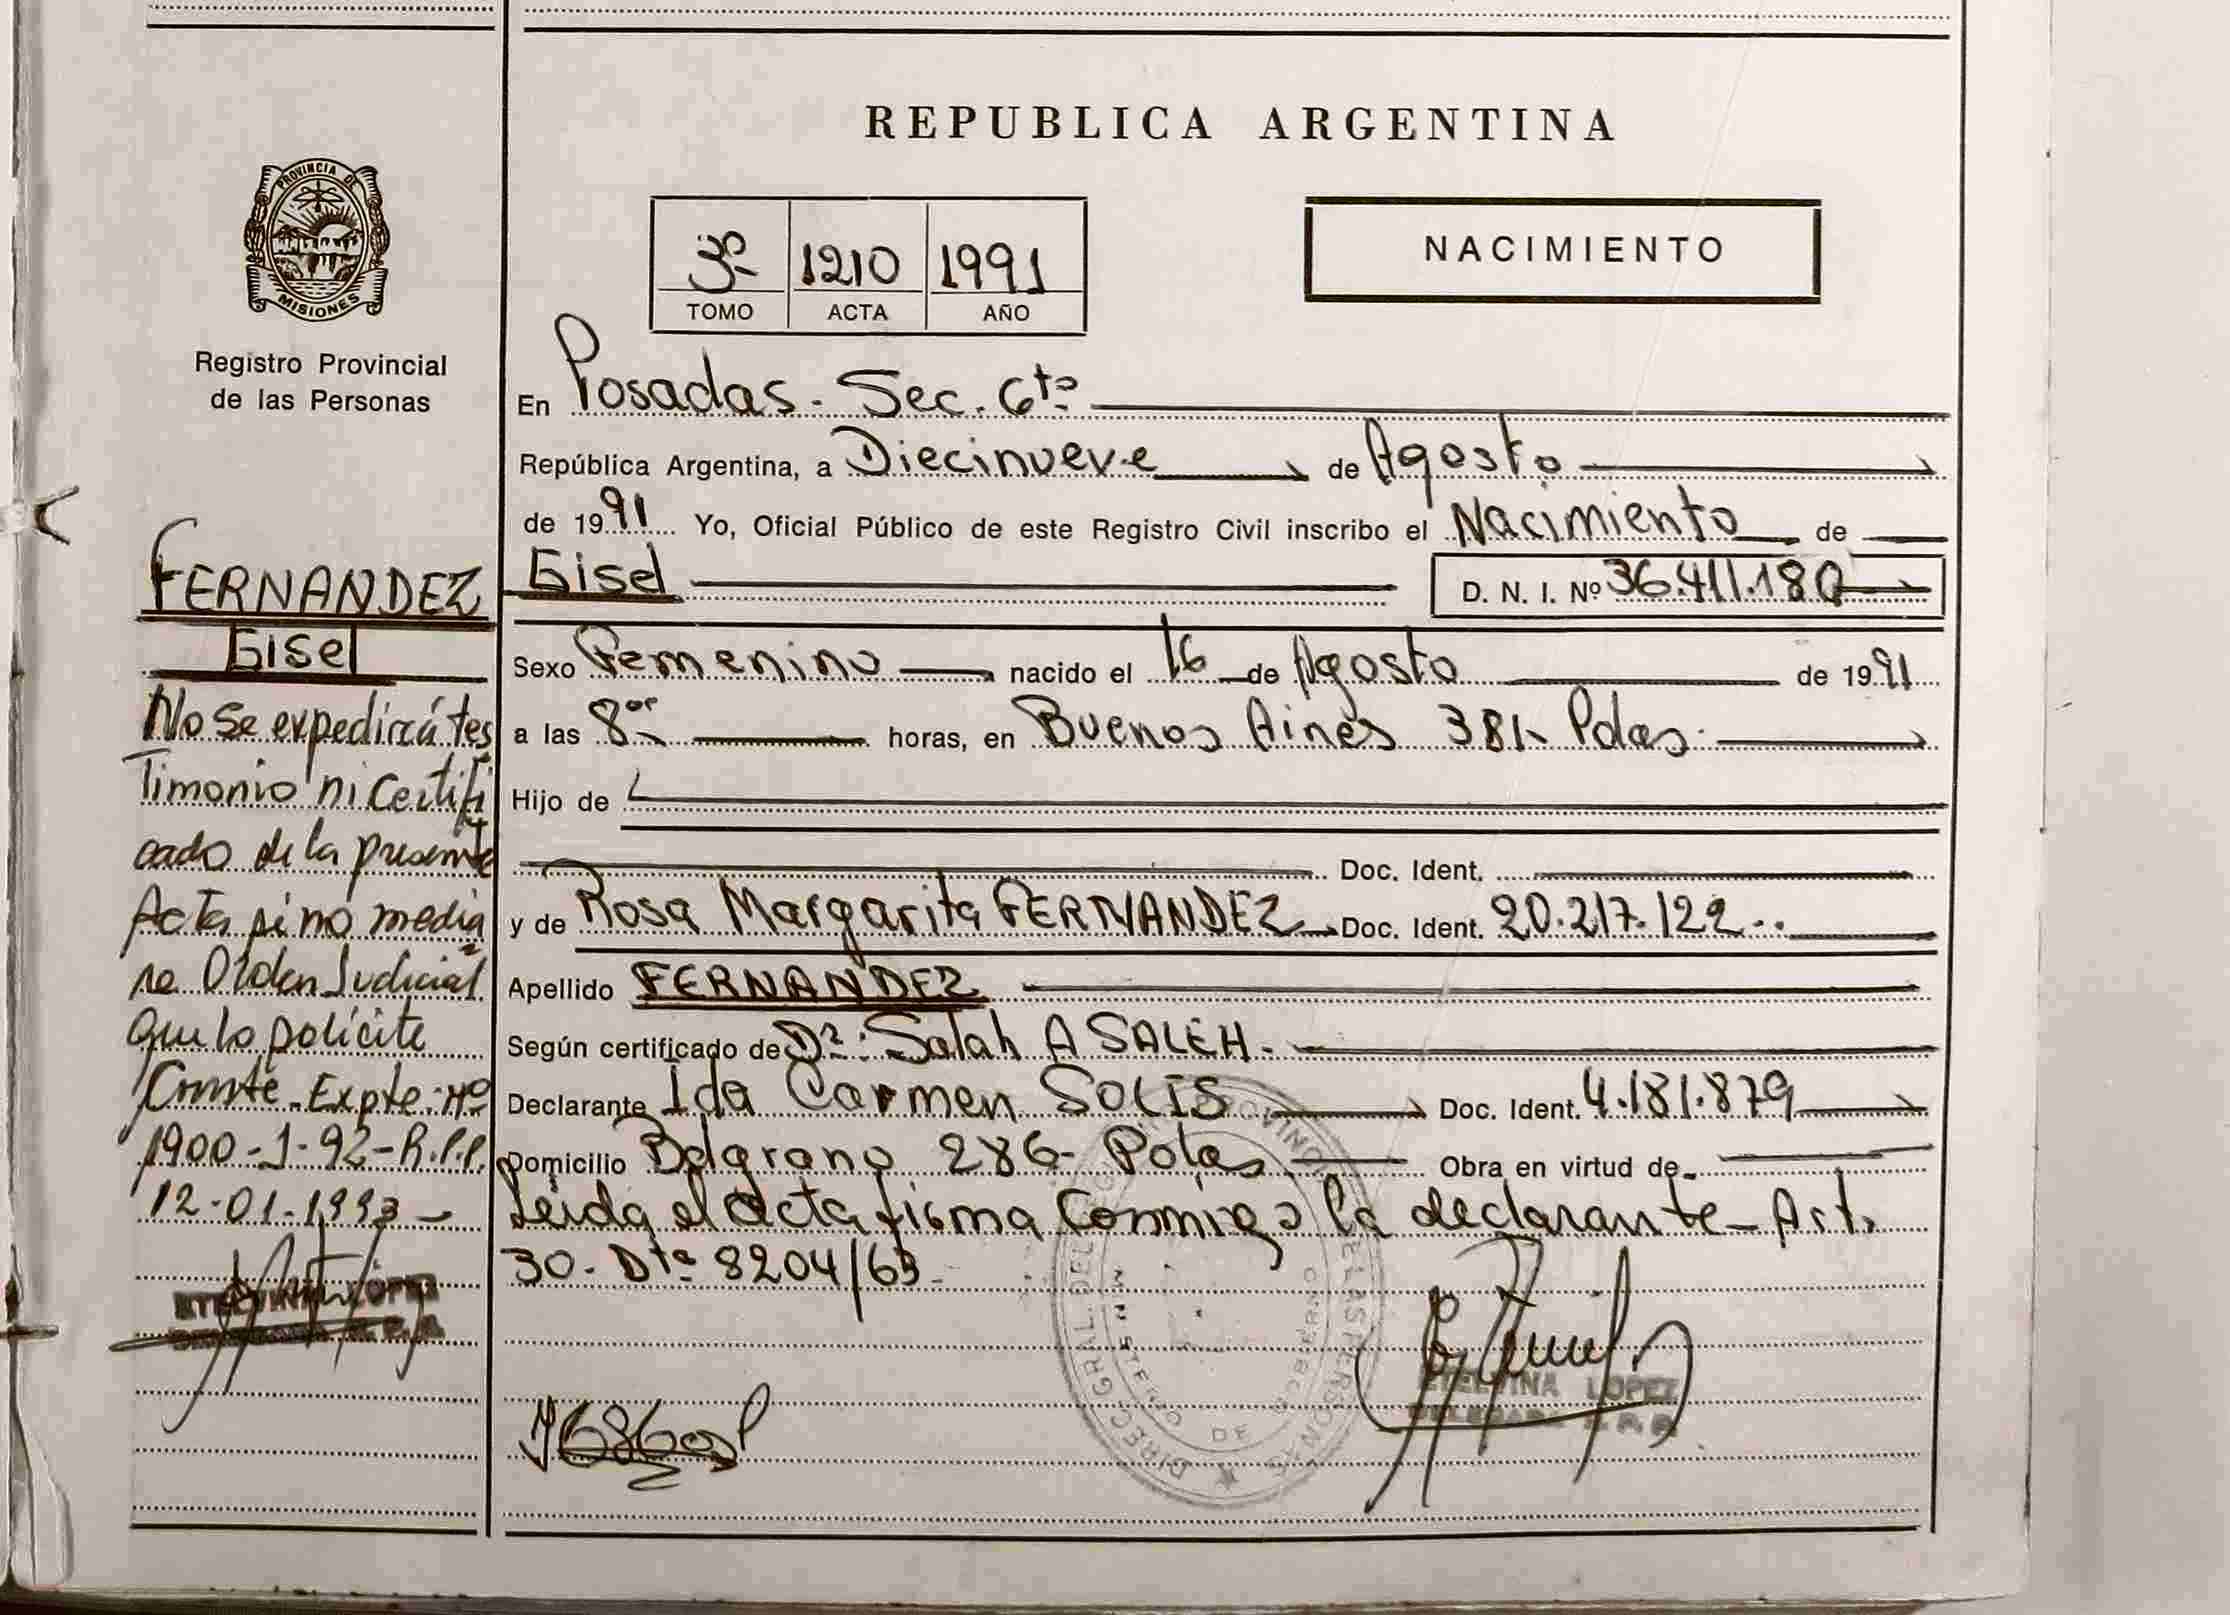 REPUBLICA ARGENTINA
PROVINCIA DE
MISIONES
Registro Provincial
de las Personas
3º 1210 1991
TOMO ACTA AÑO
NACIMIENTO
En Posadas. Sec. 6ta
República Argentina, a Diecinueve de Agosto
de 1991 Yo, Oficial Público de este Registro Civil inscribo el Nacimiento de
Gisel D. N. I. Nº 36.411.180
Sexo Femenino nacido el 16 de Agosto de 1991
a las 8 horas, en Buenos Aires 381- Pdas.
Hijo de
Doc. Ident.
y de Rosa Margarita FERNANDEZ Doc. Ident. 20.217.122
Apellido FERNANDEZ
Según certificado de Dr: Salah A SALEH.
Declarante Ida Carmen SOLIS Doc. Ident. 4.181.879
Domicilio Belgrano 286- Pdas Obra en virtud de
Leida el acta firma conmigo la declarante - Art.
30. Dto 8204/63
FERNANDEZ
Gisel
No se expedirá tes
timonio ni certifi
cado de la presente
Acta si no media
re Orden Judicial
que lo solicite
Conste. Expte. Nº
1900-J-92-R.P.P.
12-01-1993
ETELVINA LOPEZ
DELEGADA R. P. P.
ETELVINA LOPEZ
DELEGADA R. P. P.
MINISTERIO DE GOBIERNO